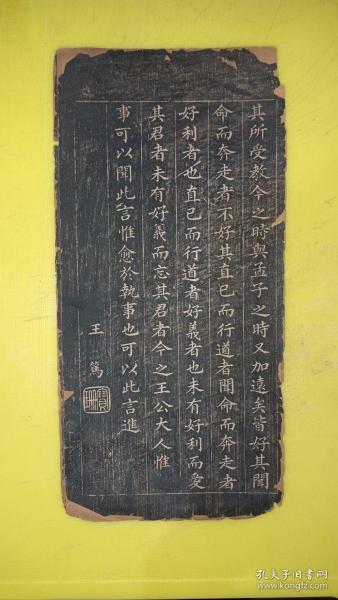 其所受教今之時與孟子之時又加遠矣皆好其聞
命而奔走者不好其直己而行道者聞命而奔走者
好利者也直己而行道者好義者也未有好利而愛
其君者未有好義而忘其君者今之王公大人惟
事可以聞此言惟愈於執事也可以此言進
王篤
孔夫子旧书网